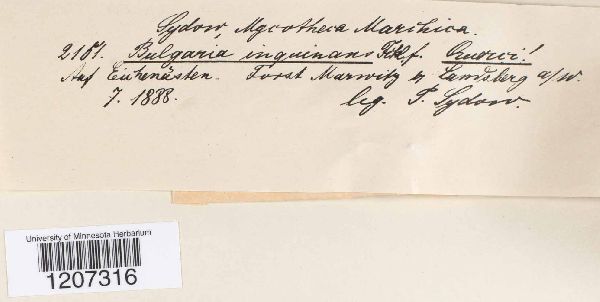 Sydow, Mycotheca Marchica.
2151. Bulgaria inquinans f. Querci!
Auf Eichenästen. Forst Marwitz Landsberg a/W.
7. 1888. leg. P. Sydow.
University of Minnesota Herbarium
1207316